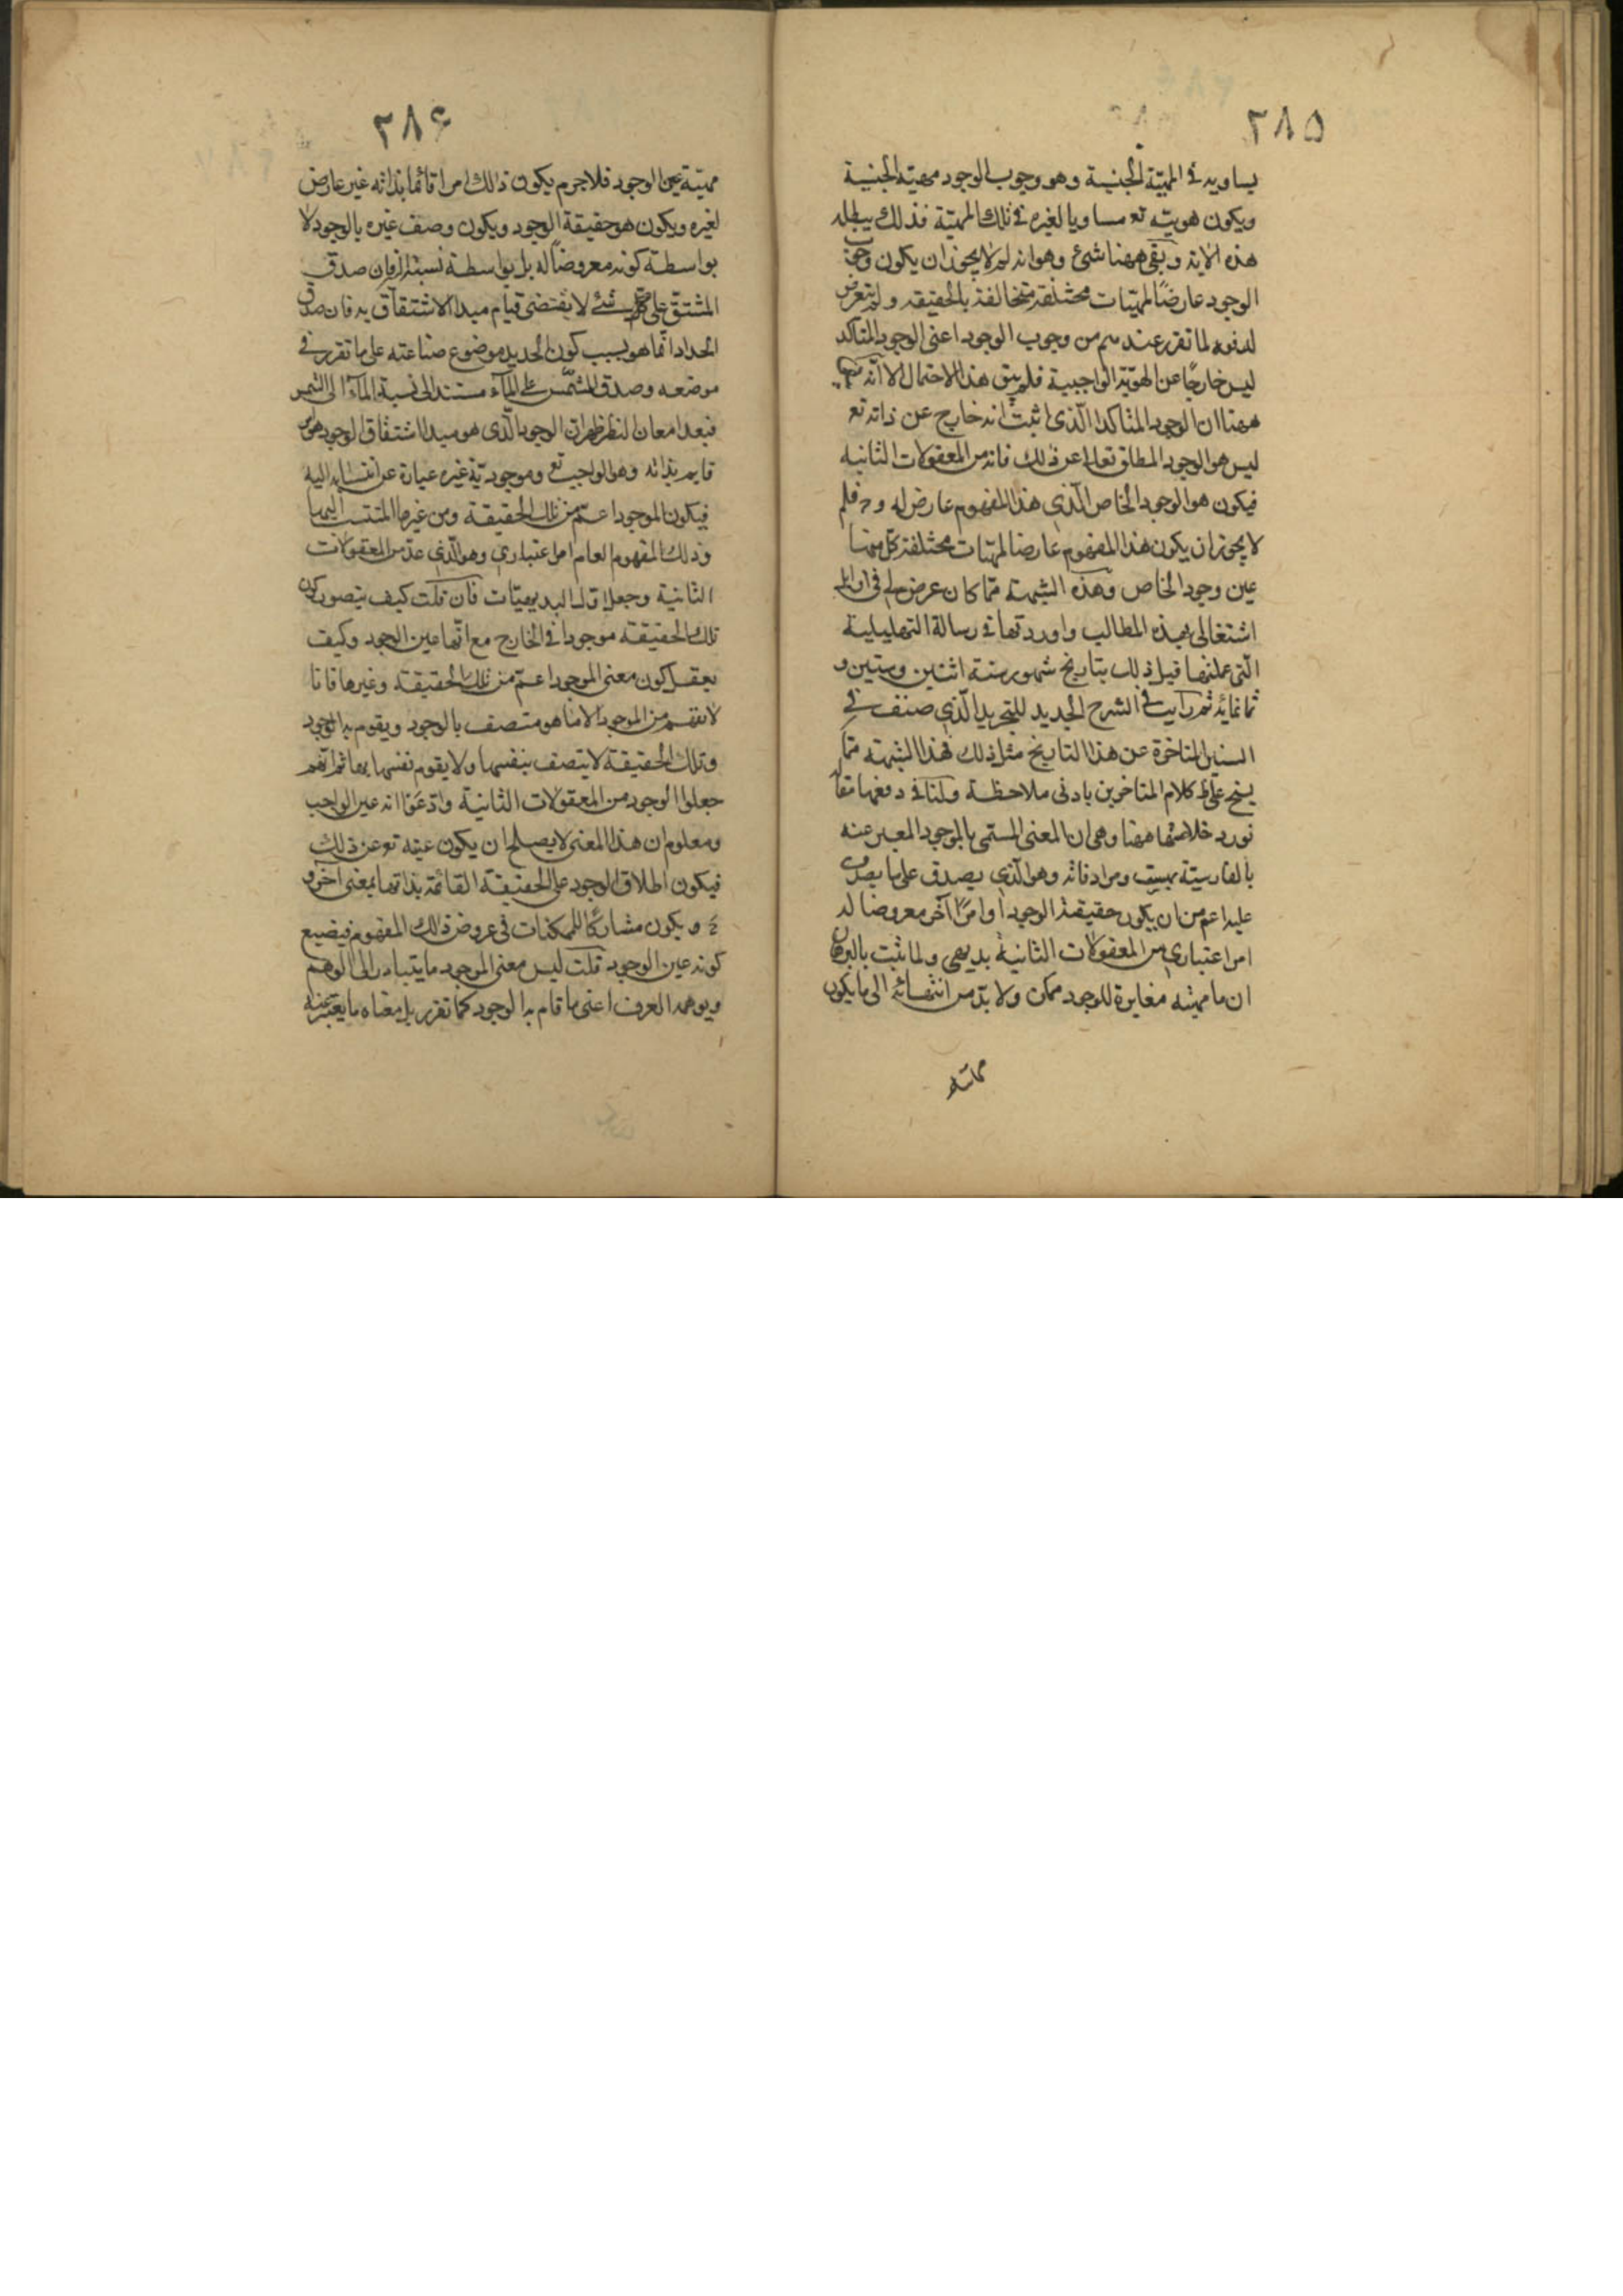 ٢٨٥
يساويه في المهيّة الجنسية وهو وجوب الوجود مهيته الجنسية
ويكون هويته تع مساويا لغيره في تلك المهيّة فذلك يبطله
هذه الاية وبقى ههنا شئ وهو انه لم لا يجوز ان يكون وجوب
الوجود عارضًا لمهيّات مختلفة متخالفة بالحقيقة ولم يتعرض
لدفعه لما تقرر عندهم من وجوب الوجود اعنى الوجود المتأكد
ليس خارجًا عن الهويّة الواجبية فلم يبق هذا الاحتمال الا انّه
ههنا ان الوجود المتأكد الّذى اثبت انه خارج عن ذاته تع
ليس هو الوجود المطلق تعالى عن ذلك فانه من المعقولات الثانيه
فيكون هو الوجود الخاص الّذي هذا المفهوم عارض له وح فلم
لا يجوز ان يكون هذا المفهوم عارضا لمهيّات مختلفة كلّ منها
عين وجود الخاص وهذه الشبهة ممّا كان عرض لى فى اوايل
اشتغالى بهذه المطالب واوردتها في رسالة التهليلية
الّتى عملتها قبل ذلك بتاريخ شهور سنة اثنين وستين و
ثمانمائه ثم رايت في الشرح الجديد للتجريد الّذي صنف في
السنين المتاخرة عن هذا التاريخ مثل ذلك فهذا الشبهة ممّا
يتجه على كلام المتاخرين بادنى ملاحظة ولنا في دفعها مقال
نورد خلاصتها ههنا وهى ان المعنى المسمى بالموجود المعبر عنه
بالفارسيّة بهست ومرادفاته وهو الّذي يصدق على ما يصدق
عليه اعم من ان يكون حقيقة الوجود أو امرًا آخر معروضا له
امر اعتباري من المعقولات الثانية بديهى ولما ثبت بالبرهان
ان ما مهيته مغايرة للوجود ممكن ولا بدّ من انتهائه الى ما يكون
مهيته
٢٨۶
مهيّته عين الوجود فلا جرم يكون ذلك امرا قائما بذاته غير عارض
لغيره ويكون هو حقيقة الوجود ويكون وصف غيره بالوجود لا
بواسطة كونه معروضًا له بل بواسطة نسبته اليه فان صدق
المشتق على شئ لا يقتضى قيام مبدا الاشتقاق به فان صدق
الحداد انّما هو بسبب كون الحديد موضوع صناعته على ما تقرر في
موضعه وصدق المشمّس على المآء مستند الى نسبة المآء الى الشمس
فبعد امعان النظر ظهر ان الوجود الّذى هو مبدا اشتقاق الوجود هو امر
قايم بذاته وهو الواجب تع وموجوديّة غيره عبارة عن انتسابه اليه
فيكون الموجود اعمّ من تلك الحقيقة ومن غيرها المنتسب اليها
وذلك المفهوم العام امر اعتباري وهو الّذى عدّ من المعقولات
الثانية وجعل اوّل البديهيّات فان قلت كيف يتصور كون
تلك الحقيقه موجودا فى الخارج مع انّها عين الوجود وكيف
يعقل كون معنى الموجود اعمّ من تلك الحقيقة وغيرها فانا
لا نفهم من الموجود الا ما هو متصف بالوجود ويقوم به الوجود
وتلك الحقيقة لا يتصف بنفسها ولا يقوم نفسها بها ثم انّهم
جعلوا الوجود من المعقولات الثانية وادّعوا انه عين الواجب
ومعلوم ان هذا المعنى لا يصلح ان يكون عينه تع عن ذلك
فيكون اطلاق الوجود على الحقيقة القائمة بذاتها بمعنى آخر و
ح ويكون مشاركًا للممكنات فى عروض ذلك المفهوم فيضيع
كونه عين الوجود قلت ليس معنى الموجود ما يتبادر الى الوهم
ويوهمه العرف اعنى ما قام به الوجود كما تقرر بل معناه ما يعبّر عنه